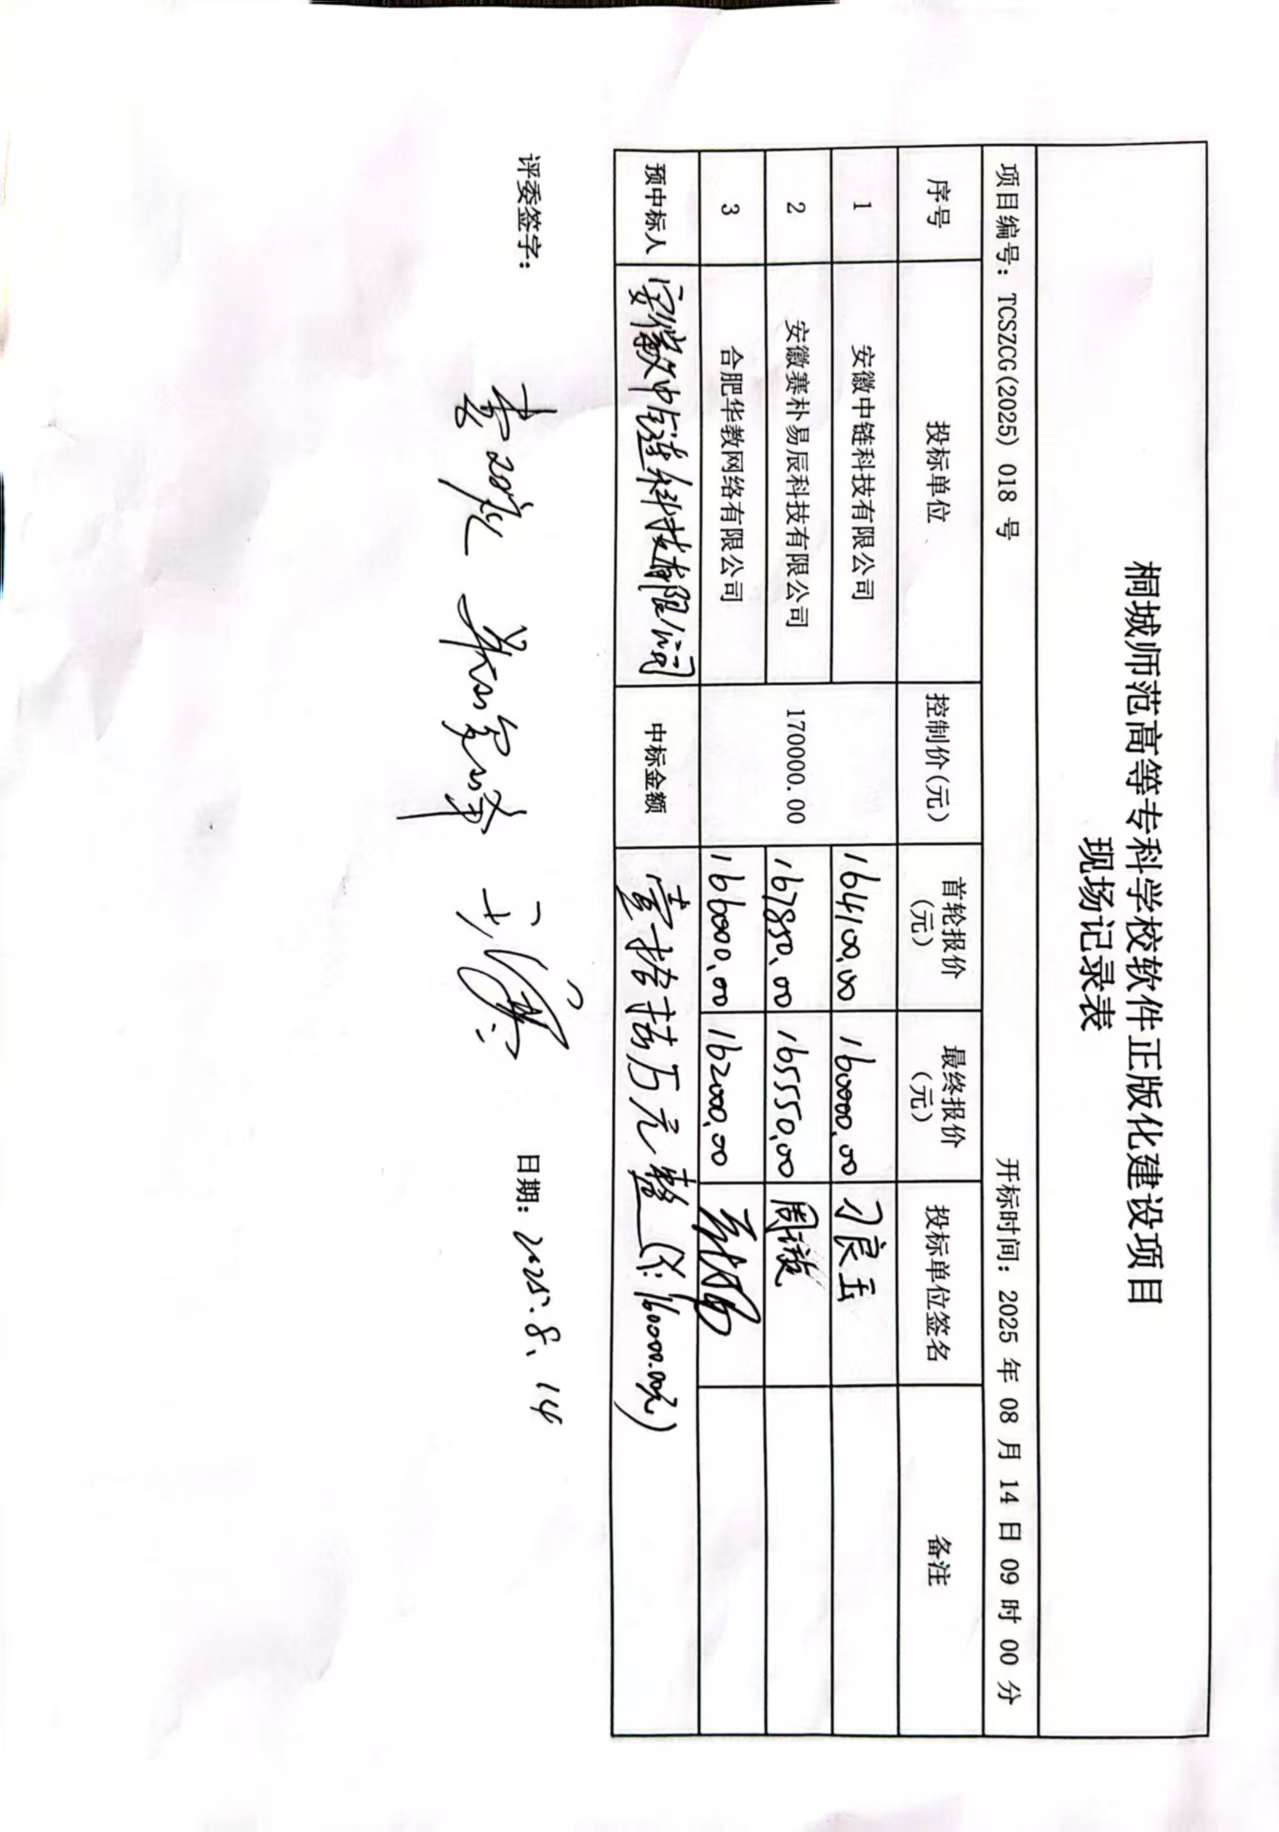 桐城师范高等专科学校软件正版化建设项目
现场记录表
项目编号：TCSZCG(2025) 018 号 开标时间：2025 年 08 月 14 日 09 时 00 分
序号 投标单位 控制价(元) 首轮报价（元） 最终报价（元） 投标单位签名 备注
1 安徽中链科技有限公司 170000.00 164100.00 160000.00 刁良玉
2 安徽赛朴易辰科技有限公司 167850.00 165550.00 周璇
3 合肥华教网络有限公司 166000.00 162000.00
预中标人 安徽中链科技有限公司 中标金额 壹拾陆万元整（¥：160000.00元）
评委签字： 日期：2025.8.14